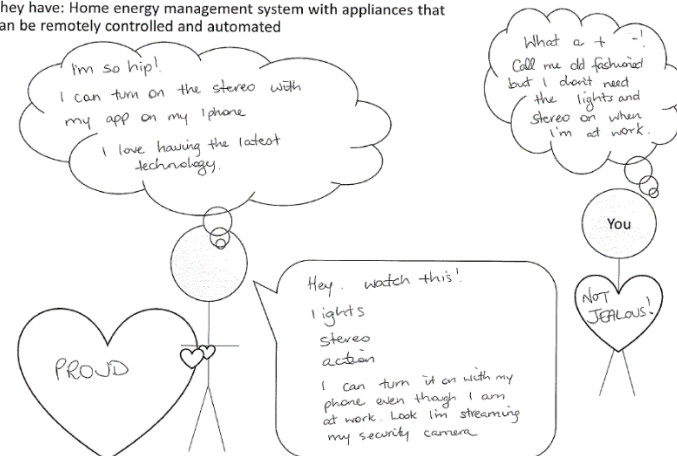 hey have: Home energy management system with appliances that
an be remotely controlled and automated
I'm so hip!
I can turn on the stereo with
my app on my iphone
I love having the latest
technology.
What a t -!
Call me old fashioned
but I don't need
the lights and
stereo on when
I'm at work.
You
NOT
JEALOUS!
PROUD
Hey. watch this!
lights
stereo
action
I can turn it on with my
phone even though I am
at work. Look I'm streaming
my security camera